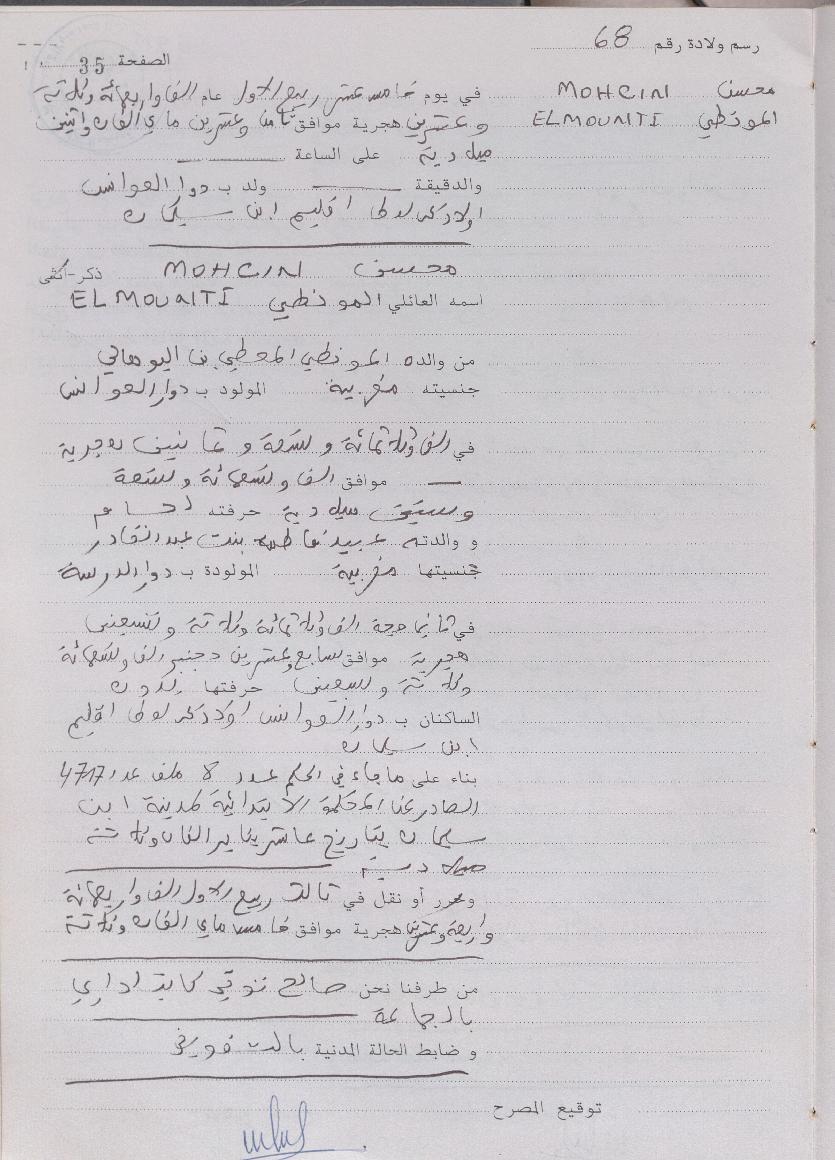 رسم ولادة رقم 68
الصفحة 35
محسن MOHCIN
المونطي ELMOUNTI
في يوم خامس عشر ربيع الاول عام الف واربعمائة وثلاثة
وعشرين هجرية موافق ثامن وعشرين ماي الفان واثنين
ميلادية على الساعة
والدقيقة ولد ب دوار العوانس
اولاد اقليم ابن سليمان
محسن MOHCIN ذكر-أنثى
اسمه العائلي المونطي ELMOUNTI
من والده المونطي المعطي بن البوهالي
جنسيته مغربية المولود ب دوار العوانس
في الف وثلاثمائة وتسعة وثمانين هجرية
موافق الف وتسعمائة وتسعة
وستين ميلادية حرفته لحام
و والدته فاطمة بنت عبد القادر
جنسيتها مغربية المولودة ب دوار
في حجة الف وثلاثمائة وثلاثة وتسعين
هجرية موافق سابع وعشرين دجنبر الف وتسعمائة
وثلاثة وسبعين حرفتها بدون
الساكنان ب دوار العوانس اولاد اقليم
ابن سليمان
بناء على ما جاء في الحكم عدد 8 ملف عدد 4717
الصادر عن المحكمة الابتدائية لمدينة ابن
سليمان بتاريخ عاشر يناير الفان وثلاثة
ميلادية
وحرر أو نقل في ثالث ربيع الاول الف واربعمائة
واربعة وعشرين هجرية موافق خامس ماي الفان وثلاثة
من طرفنا نحن صالح كاتب اداري
بالجماعة
و ضابط الحالة المدنية بالتفويض
توقيع المصرح